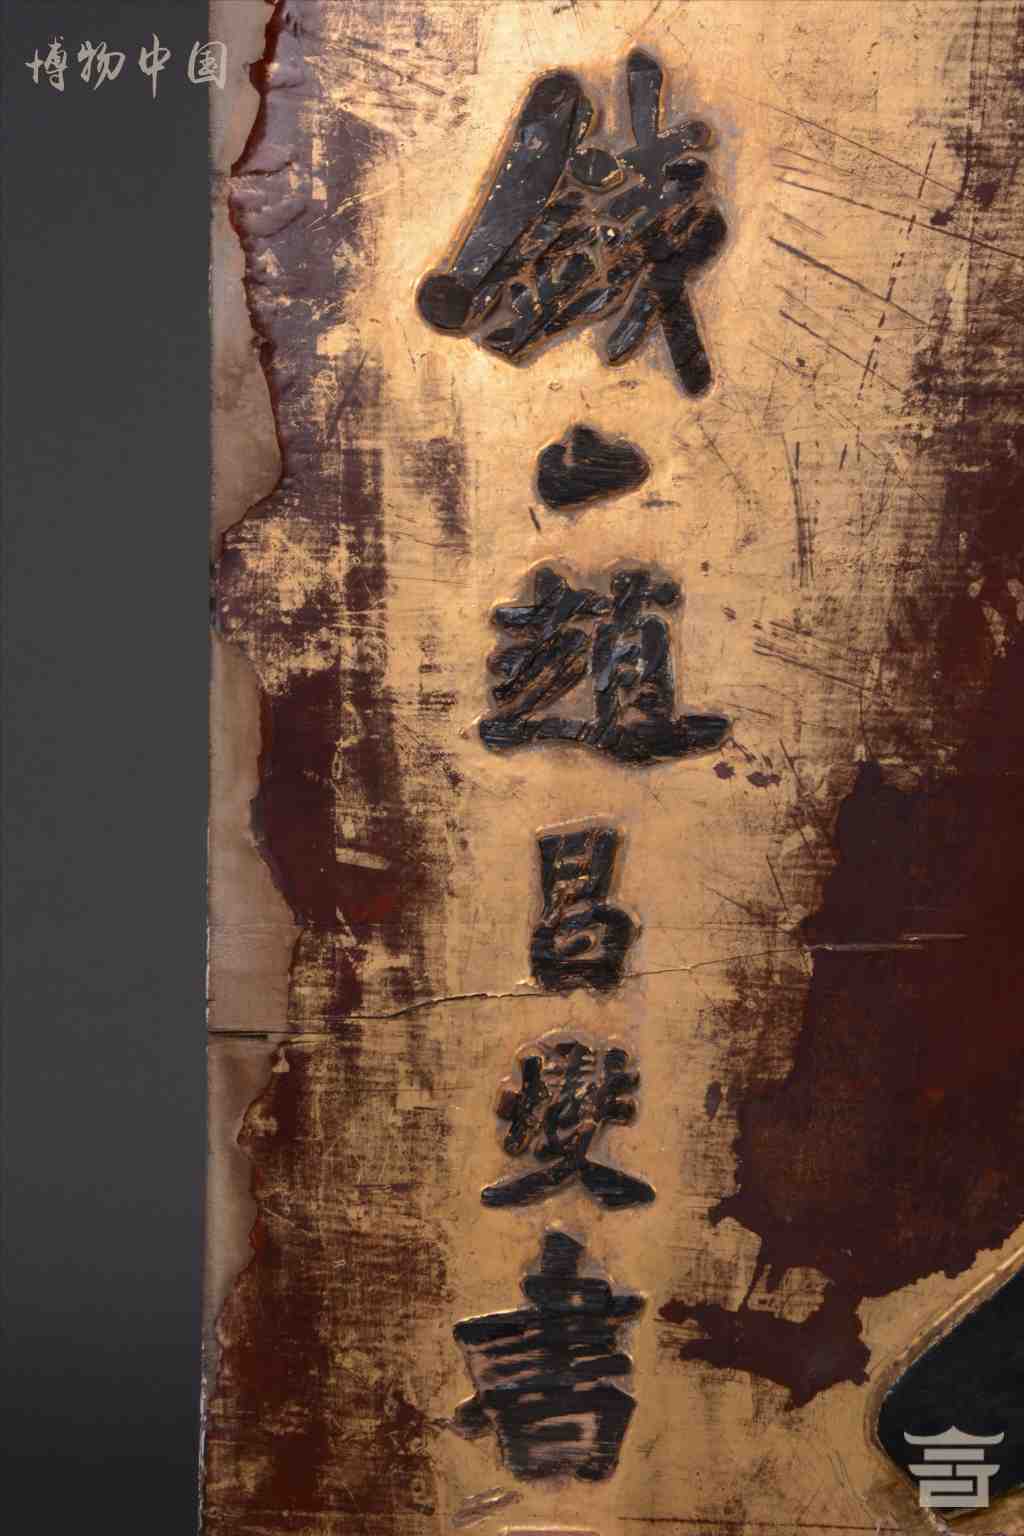 博物中国
鐵山趙昌燮書